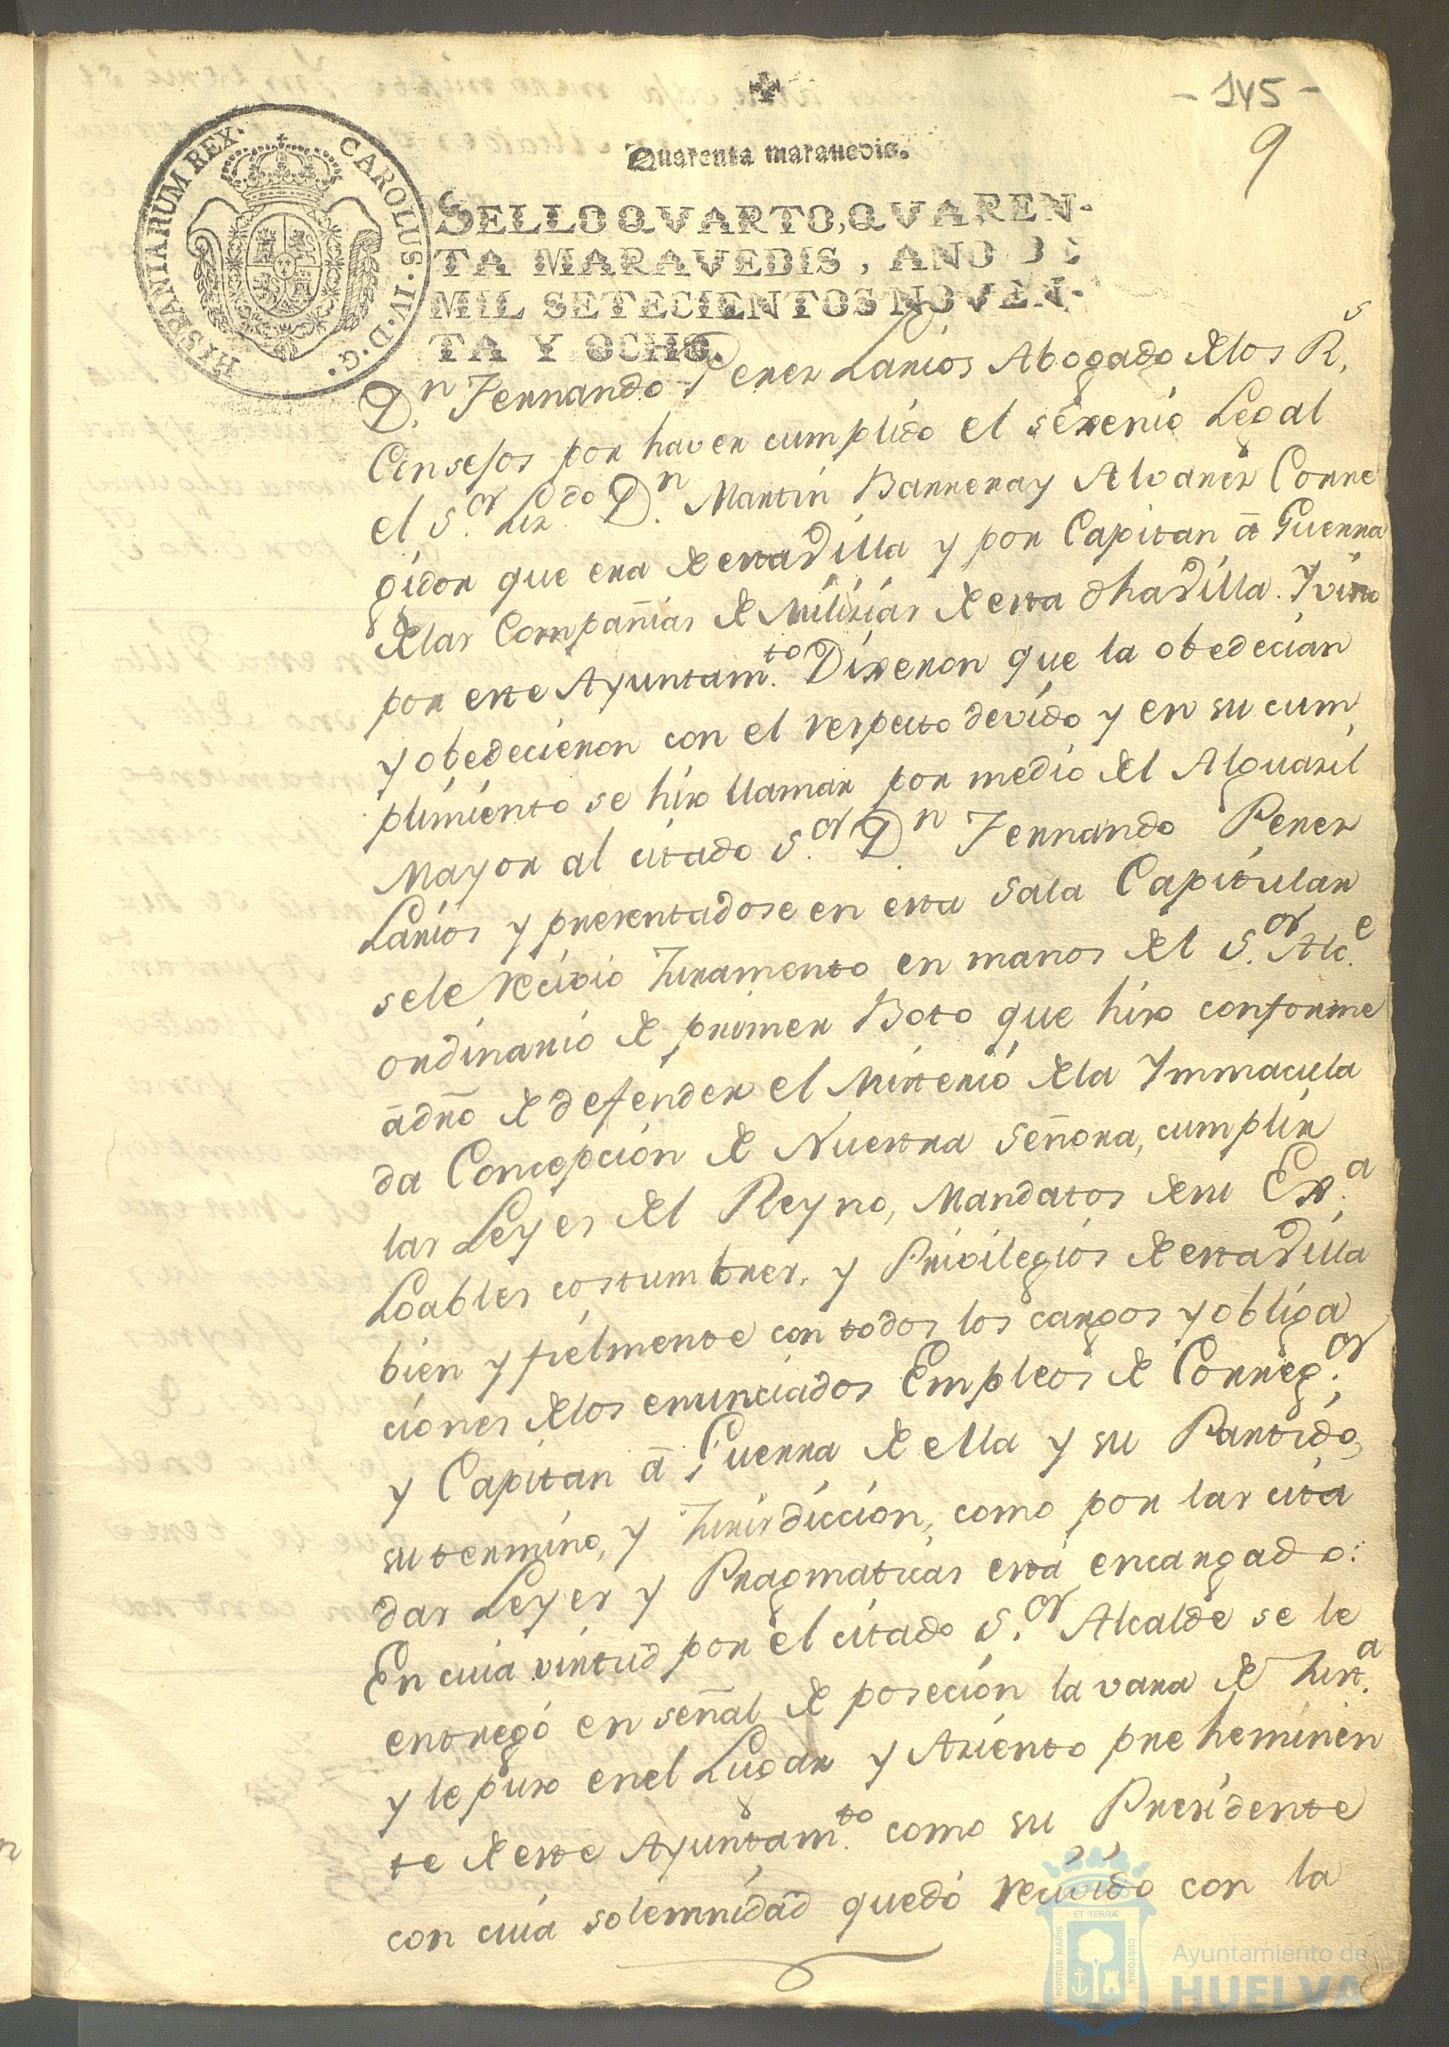 - 145 -
9
Quarenta maravedis.
HISPANIARUM REX. CAROLUS. IV. D. G.
SELLO QVARTO, QVAREN-
TA MARAVEDIS, AÑO DE
MIL SETECIENTOS NOVEN-
TA Y OCHO.
D.n Fernando Perez Larios Abogado de los R.s
Consejos por haver cumplido el sexenio Legal
el S.or Liz.do D.n Martin Barrera y Alvarez Corre
gidor que era de esta Villa y por Capitan â Guerra
de las Compañias de Milizias de esta dha Villa. Y visto
por este Ayuntam.to Dixeron que la obedecian
y obedecieron con el respecto devido y en su cum
plimiento se hizo llamar por medio del Alguazil
Mayor al citado S.or D.n Fernando Perez
Larios y presentadose en esta Sala Capitular
se le recivio Juramento en manos del S.or Alc.e
ordinario de primer Boto que hizo conforme
â dro de defender el Misterio de la Ymmacula
da Concepcion de Nuestra Señora, cumplir
las Leyes del Reyno, Mandatos de su Ex.a
Loables costumbres, y Privilegios de esta Villa
bien y fielmente con todos los cargos y obliga
ciones de los enunciados Empleos de Correg.or
y Capitan â Guerra de ella y su Partido,
su termino, y Jurisdiccion, como por las cita
das Leyes y Pragmaticas está encargado:
En cuia virtud por el citado S.or Alcalde se le
entregó en señal de poseción la vara de Just.a
y le puso en el Lugar y Asiento preheminen
te de este Ayuntam.to como su Presidente
con cuia solemnidad quedó recivido con la
PORTUS MARIS ET TERRÆ CUSTODIA
Ayuntamiento de
HUELVA